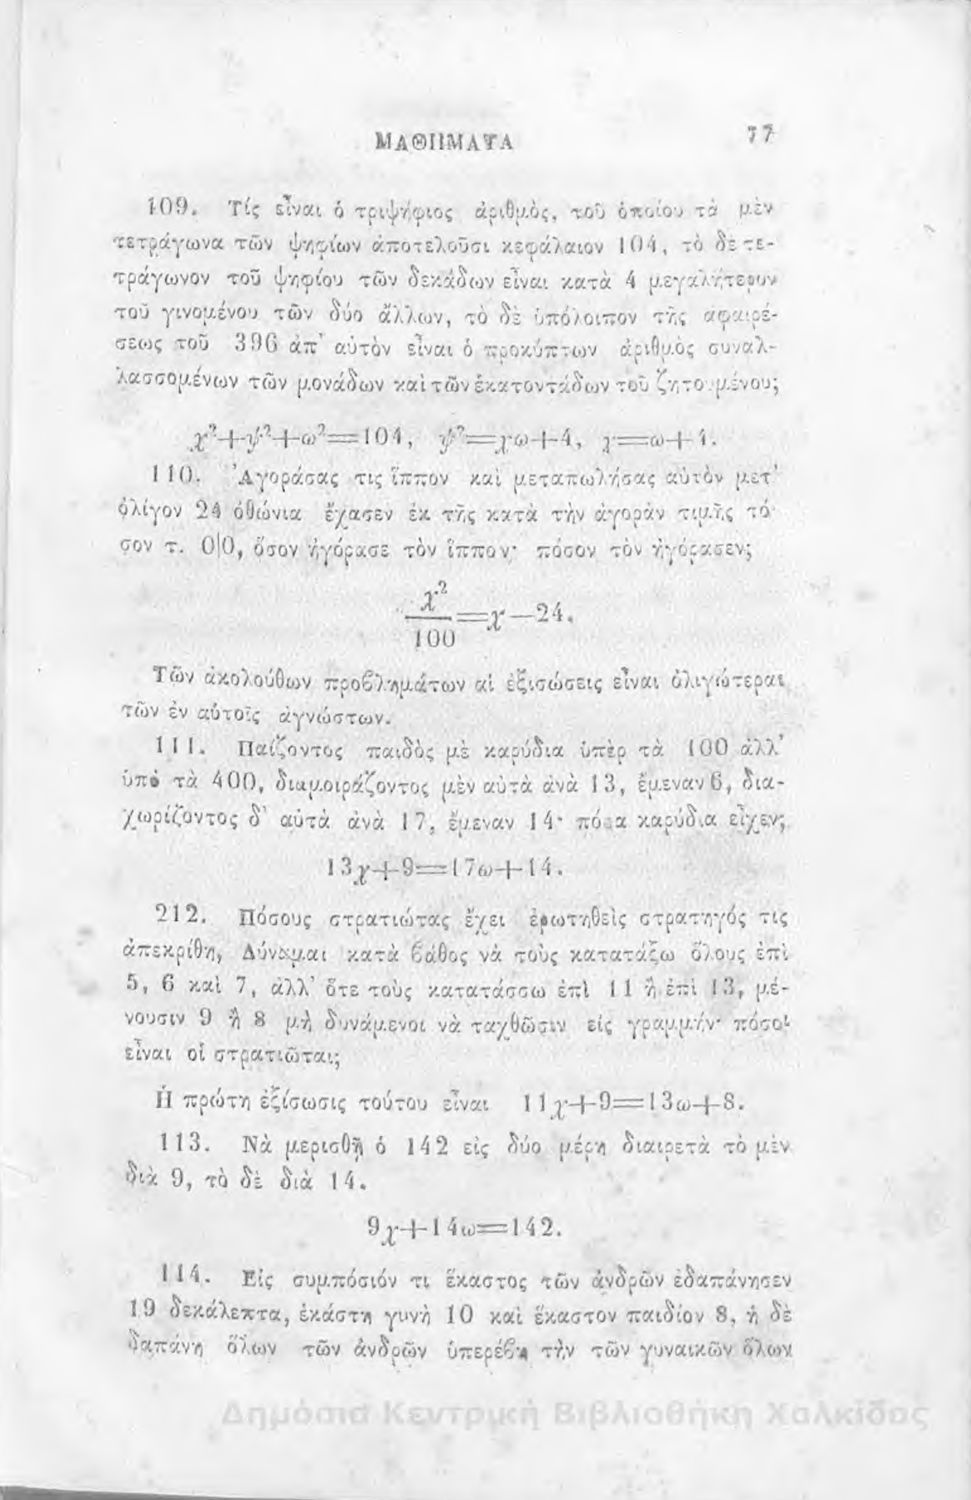 ΜΑΘΗΜΑΤΑ 77
109. Τίς εἶναι ὁ τριψήφιος ἀριθμὸς, τοῦ ὁποίου τὰ μὲν
τετράγωνα τῶν ψηφίων ἀποτελοῦσι κεφάλαιον 104, τὸ δὲ τε-
τράγωνον τοῦ ψηφίου τῶν δεκάδων εἶναι κατὰ 4 μεγαλήτερον
τοῦ γινομένου τῶν δύο ἄλλων, τὸ δὲ ὑπόλοιπον τῆς αφαιρέ-
σεως τοῦ 396 ἀπ' αὐτὸν εἶναι ὁ προκύπτων ἀριθμὸς συναλ-
λασσομένων τῶν μονάδων καὶ τῶν ἑκατοντάδων τοῦ ζητουμένου;
χ²+ψ²+ω²=104, ψ²=χω+4, χ=ω+4.
110. Ἀγοράσας τις ἵππον καὶ μεταπωλήσας αὐτὸν μετ'
ὀλίγον 24 ὀθώνια ἔχασεν ἐκ τῆς κατὰ τὴν ἀγορὰν τιμῆς τό
σον τ. 0|0, ὅσον ἠγόρασε τὸν ἵππον· πόσον τὸν ἠγόρασεν;
χ²
100 =χ—24.
Τῶν ἀκολούθων προβλημάτων αἱ ἐξισώσεις εἶναι ὀλιγώτεραι
τῶν ἐν αὐτοῖς ἀγνώστων.
111. Παίζοντος παιδὸς μὲ καρύδια ὑπὲρ τὰ 100 ἀλλ'
ὑπὸ τὰ 400, διαμοιράζοντος μὲν αὐτὰ ἀνὰ 13, ἔμεναν 6, δια-
χωρίζοντος δ' αὐτὰ ἀνὰ 17, ἔμεναν 14· πόσα καρύδια εἶχεν;
13χ+9=17ω+14.
212. Πόσους στρατιώτας ἔχει ἐρωτηθεὶς στρατηγός τις
ἀπεκρίθη, Δύναμαι κατὰ βάθος νὰ τοὺς κατατάξω ὅλους ἐπὶ
5, 6 καὶ 7, ἀλλ' ὅτε τοὺς κατατάσσω ἐπὶ 11 ἢ ἐπὶ 13, μέ-
νουσιν 9 ἢ 8 μὴ δυνάμενοι νὰ ταχθῶσιν εἰς γραμμήν· πόσοι
εἶναι οἱ στρατιῶται;
Ἡ πρώτη ἐξίσωσις τούτου εἶναι 11χ+9=13ω+8.
113. Νὰ μερισθῇ ὁ 142 εἰς δύο μέρη διαιρετὰ τὸ μὲν
διὰ 9, τὸ δὲ διὰ 14.
9χ+14ω=142.
114. Εἰς συμπόσιόν τι ἕκαστος τῶν ἀνδρῶν ἐδαπάνησεν
19 δεκάλεπτα, ἑκάστη γυνὴ 10 καὶ ἕκαστον παιδίον 8, ἡ δὲ
δαπάνη ὅλων τῶν ἀνδρῶν ὑπερέβη τὴν τῶν γυναικῶν ὅλων
Δημόσια Κεντρική Βιβλιοθήκη Χαλκίδος